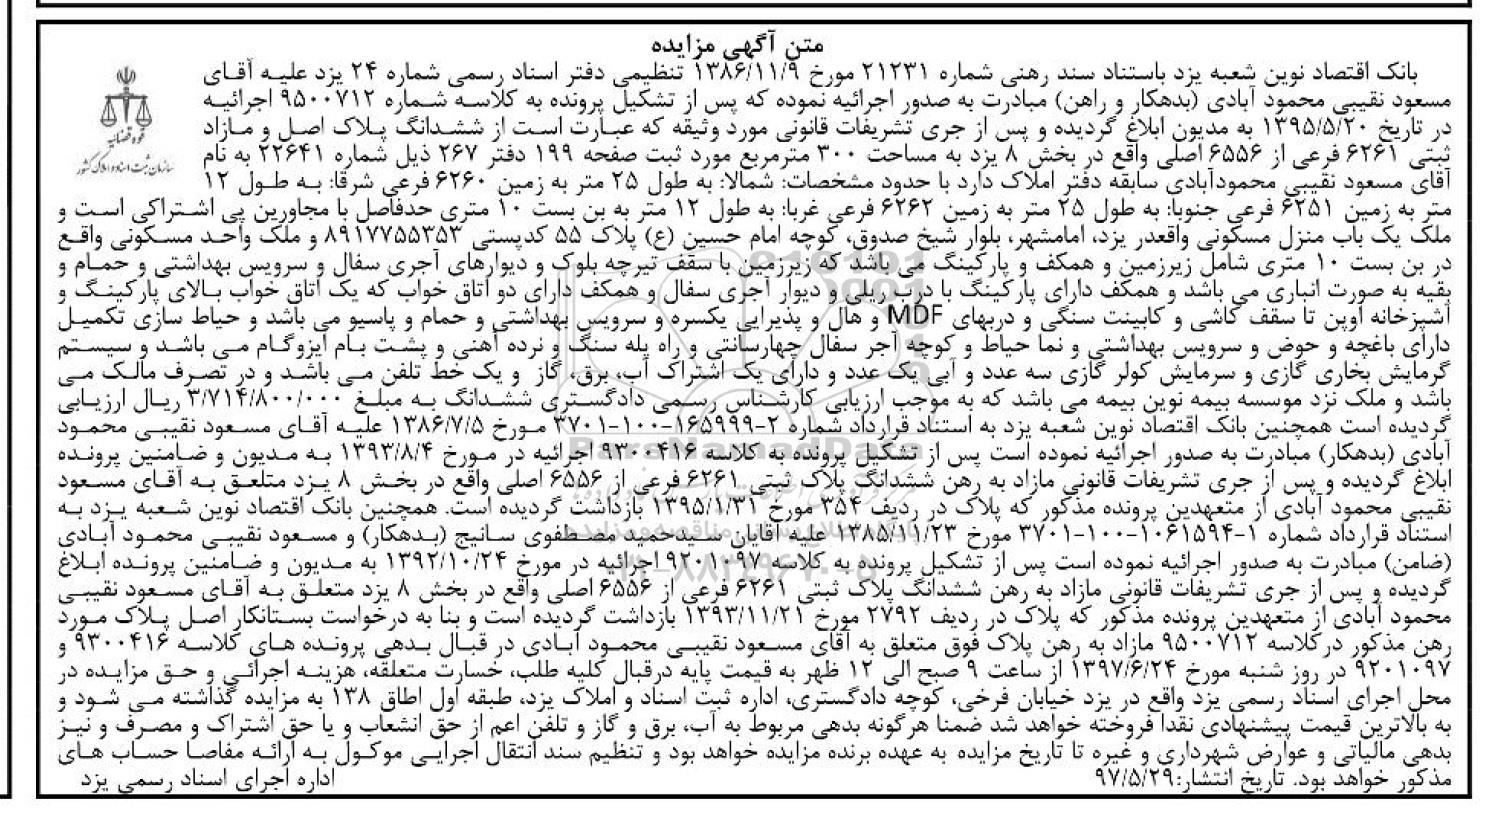 متن آگهی مزایده
بانک اقتصاد نوین شعبه یزد باستناد سند رهنی شماره ۲۱۲۳۱ مورخ ۱۳۸۶/۱۱/۹ تنظیمی دفتر اسناد رسمی شماره ۲۴ یزد علیه آقای
مسعود نقیبی محمود آبادی (بدهکار و راهن) مبادرت به صدور اجرائیه نموده که پس از تشکیل پرونده به کلاسه شماره ۹۵۰۰۷۱۲ اجرائیه
در تاریخ ۱۳۹۵/۵/۲۰ به مدیون ابلاغ گردیده و پس از جری تشریفات قانونی مورد وثیقه که عبارت است از ششدانگ پلاک اصل و مازاد
ثبتی ۶۲۶۱ فرعی از ۶۵۵۶ اصلی واقع در بخش ۸ یزد به مساحت ۳۰۰ مترمربع مورد ثبت صفحه ۱۹۹ دفتر ۲۶۷ ذیل شماره ۲۲۶۴۱ به نام
آقای مسعود نقیبی محمودآبادی سابقه دفتر املاک دارد با حدود مشخصات: شمالا: به طول ۲۵ متر به زمین ۶۲۶۰ فرعی شرقا: به طول ۱۲
متر به زمین ۶۲۵۱ فرعی جنوبا: به طول ۲۵ متر به زمین ۶۲۶۲ فرعی غربا: به طول ۱۲ متر به بن بست ۱۰ متری حدفاصل با مجاورین پی اشتراکی است و
ملک یک باب منزل مسکونی واقعدر یزد، امامشهر، بلوار شیخ صدوق، کوچه امام حسین (ع) پلاک ۵۵ کدپستی ۸۹۱۷۷۵۵۳۵۳ و ملک واحد مسکونی واقع
در بن بست ۱۰ متری شامل زیرزمین و همکف و پارکینگ می باشد که زیرزمین با سقف تیرچه بلوک و دیوارهای آجری سفال و سرویس بهداشتی و حمام و
بقیه به صورت انباری می باشد و همکف دارای پارکینگ با درب ریلی و دیوار آجری سفال و همکف دارای دو اتاق خواب که یک اتاق خواب بالای پارکینگ و
آشپزخانه اوپن تا سقف کاشی و کابینت سنگی و دربهای MDF و هال و پذیرایی یکسره و سرویس بهداشتی و حمام و پاسیو می باشد و حیاط سازی تکمیل
دارای باغچه و حوض و سرویس بهداشتی و نما حیاط و کوچه آجر سفال چهارسانتی و راه پله سنگ و نرده آهنی و پشت بام ایزوگام می باشد و سیستم
گرمایش بخاری گازی و سرمایش کولر گازی سه عدد و آبی یک عدد و دارای یک اشتراک آب، برق، گاز و یک خط تلفن می باشد و در تصرف مالک می
باشد و ملک نزد موسسه بیمه نوین بیمه می باشد که به موجب ارزیابی کارشناس رسمی دادگستری ششدانگ به مبلغ ۳/۷۱۴/۸۰۰/۰۰۰ ریال ارزیابی
گردیده است همچنین بانک اقتصاد نوین شعبه یزد به استناد قرارداد شماره ۲-۱۶۵۹۹۹-۱۰۰-۳۷۰۱ مورخ ۱۳۸۶/۷/۵ علیه آقای مسعود نقیبی محمود
آبادی (بدهکار) مبادرت به صدور اجرائیه نموده است پس از تشکیل پرونده به کلاسه ۹۳۰۰۴۱۶ اجرائیه در مورخ ۱۳۹۳/۸/۴ به مدیون و ضامنین پرونده
ابلاغ گردیده و پس از جری تشریفات قانونی مازاد به رهن ششدانگ پلاک ثبتی ۶۲۶۱ فرعی از ۶۵۵۶ اصلی واقع در بخش ۸ یزد متعلق به آقای مسعود
نقیبی محمود آبادی از متعهدین پرونده مذکور که پلاک در ردیف ۳۵۴ مورخ ۱۳۹۵/۱/۳۱ بازداشت گردیده است. همچنین بانک اقتصاد نوین شعبه یزد به
استناد قرارداد شماره ۱-۱۰۶۱۵۹۴-۱۰۰-۳۷۰۱ مورخ ۱۳۸۵/۱۱/۲۳ علیه آقایان سیدحمید مصطفوی سانیج (بدهکار) و مسعود نقیبی محمود آبادی
(ضامن) مبادرت به صدور اجرائیه نموده است پس از تشکیل پرونده به کلاسه ۹۲۰۱۰۹۷ اجرائیه در مورخ ۱۳۹۲/۱۰/۲۴ به مدیون و ضامنین پرونده ابلاغ
گردیده و پس از جری تشریفات قانونی مازاد به رهن ششدانگ پلاک ثبتی ۶۲۶۱ فرعی از ۶۵۵۶ اصلی واقع در بخش ۸ یزد متعلق به آقای مسعود نقیبی
محمود آبادی از متعهدین پرونده مذکور که پلاک در ردیف ۲۷۹۲ مورخ ۱۳۹۳/۱۱/۲۱ بازداشت گردیده است و بنا به درخواست بستانکار اصل پلاک مورد
رهن مذکور درکلاسه ۹۵۰۰۷۱۲ مازاد به رهن پلاک فوق متعلق به آقای مسعود نقیبی محمود آبادی در قبال بدهی پرونده های کلاسه ۹۳۰۰۴۱۶ و
۹۲۰۱۰۹۷ در روز شنبه مورخ ۱۳۹۷/۶/۲۴ از ساعت ۹ صبح الی ۱۲ ظهر به قیمت پایه درقبال کلیه طلب، خسارت متعلقه، هزینه اجرائی و حق مزایده در
محل اجرای اسناد رسمی یزد واقع در یزد خیابان فرخی، کوچه دادگستری، اداره ثبت اسناد و املاک یزد، طبقه اول اطاق ۱۳۸ به مزایده گذاشته می شود و
به بالاترین قیمت پیشنهادی نقدا فروخته خواهد شد ضمنا هرگونه بدهی مربوط به آب، برق و گاز و تلفن اعم از حق انشعاب و یا حق اشتراک و مصرف و نیز
بدهی مالیاتی و عوارض شهرداری و غیره تا تاریخ مزایده به عهده برنده مزایده خواهد بود و تنظیم سند انتقال اجرایی موکول به ارائه مفاصا حساب های
مذکور خواهد بود. تاریخ انتشار:۹۷/۵/۲۹ اداره اجرای اسناد رسمی یزد
قوه قضائیه
سازمان ثبت اسناد و املاک کشور
ParsNamadData